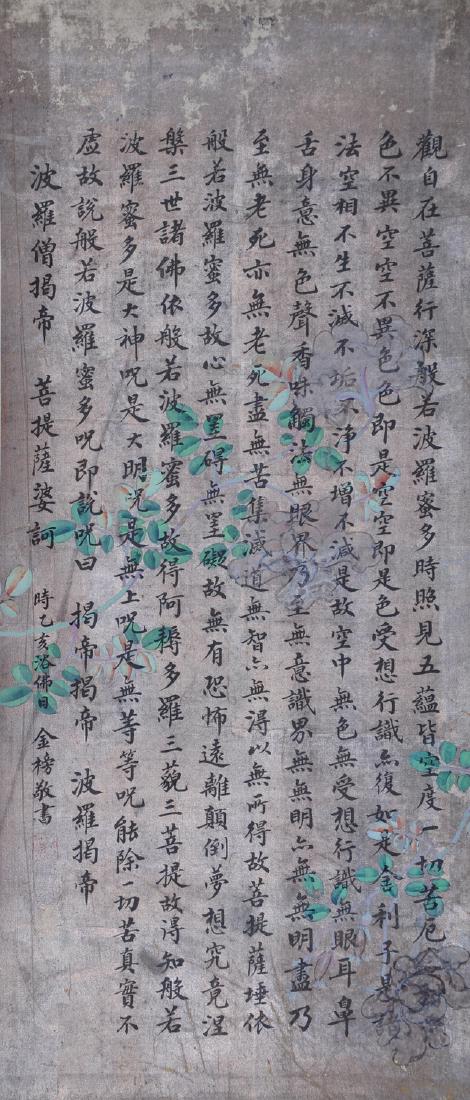 觀自在菩薩行深般若波羅蜜多時照見五蘊皆空度一切苦厄
色不異空空不異色色即是空空即是色受想行識亦復如是舍利子是諸
法空相不生不滅不垢不淨不增不減是故空中無色無受想行識無眼耳鼻
舌身意無色聲香味觸法無眼界乃至無意識界無無明亦無無明盡乃
至無老死亦無老死盡無苦集滅道無智亦無得以無所得故菩提薩埵依
般若波羅蜜多故心無罣碍無罣礙故無有恐怖遠離顛倒夢想究竟涅
槃三世諸佛依般若波羅蜜多故得阿耨多羅三藐三菩提故得知般若
波羅蜜多是大神咒是大明咒是無上咒是無等等咒能除一切苦真實不
虛故說般若波羅蜜多咒即說咒曰 揭帝揭帝 波羅揭帝
波羅僧揭帝 菩提薩婆訶
時乙亥浴佛日 金榜敬書